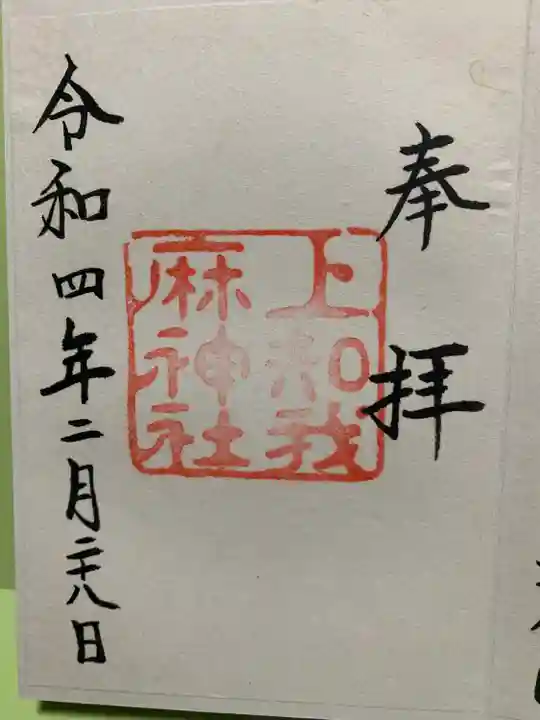 奉拝
上知我
麻神社
令和四年二月二十八日